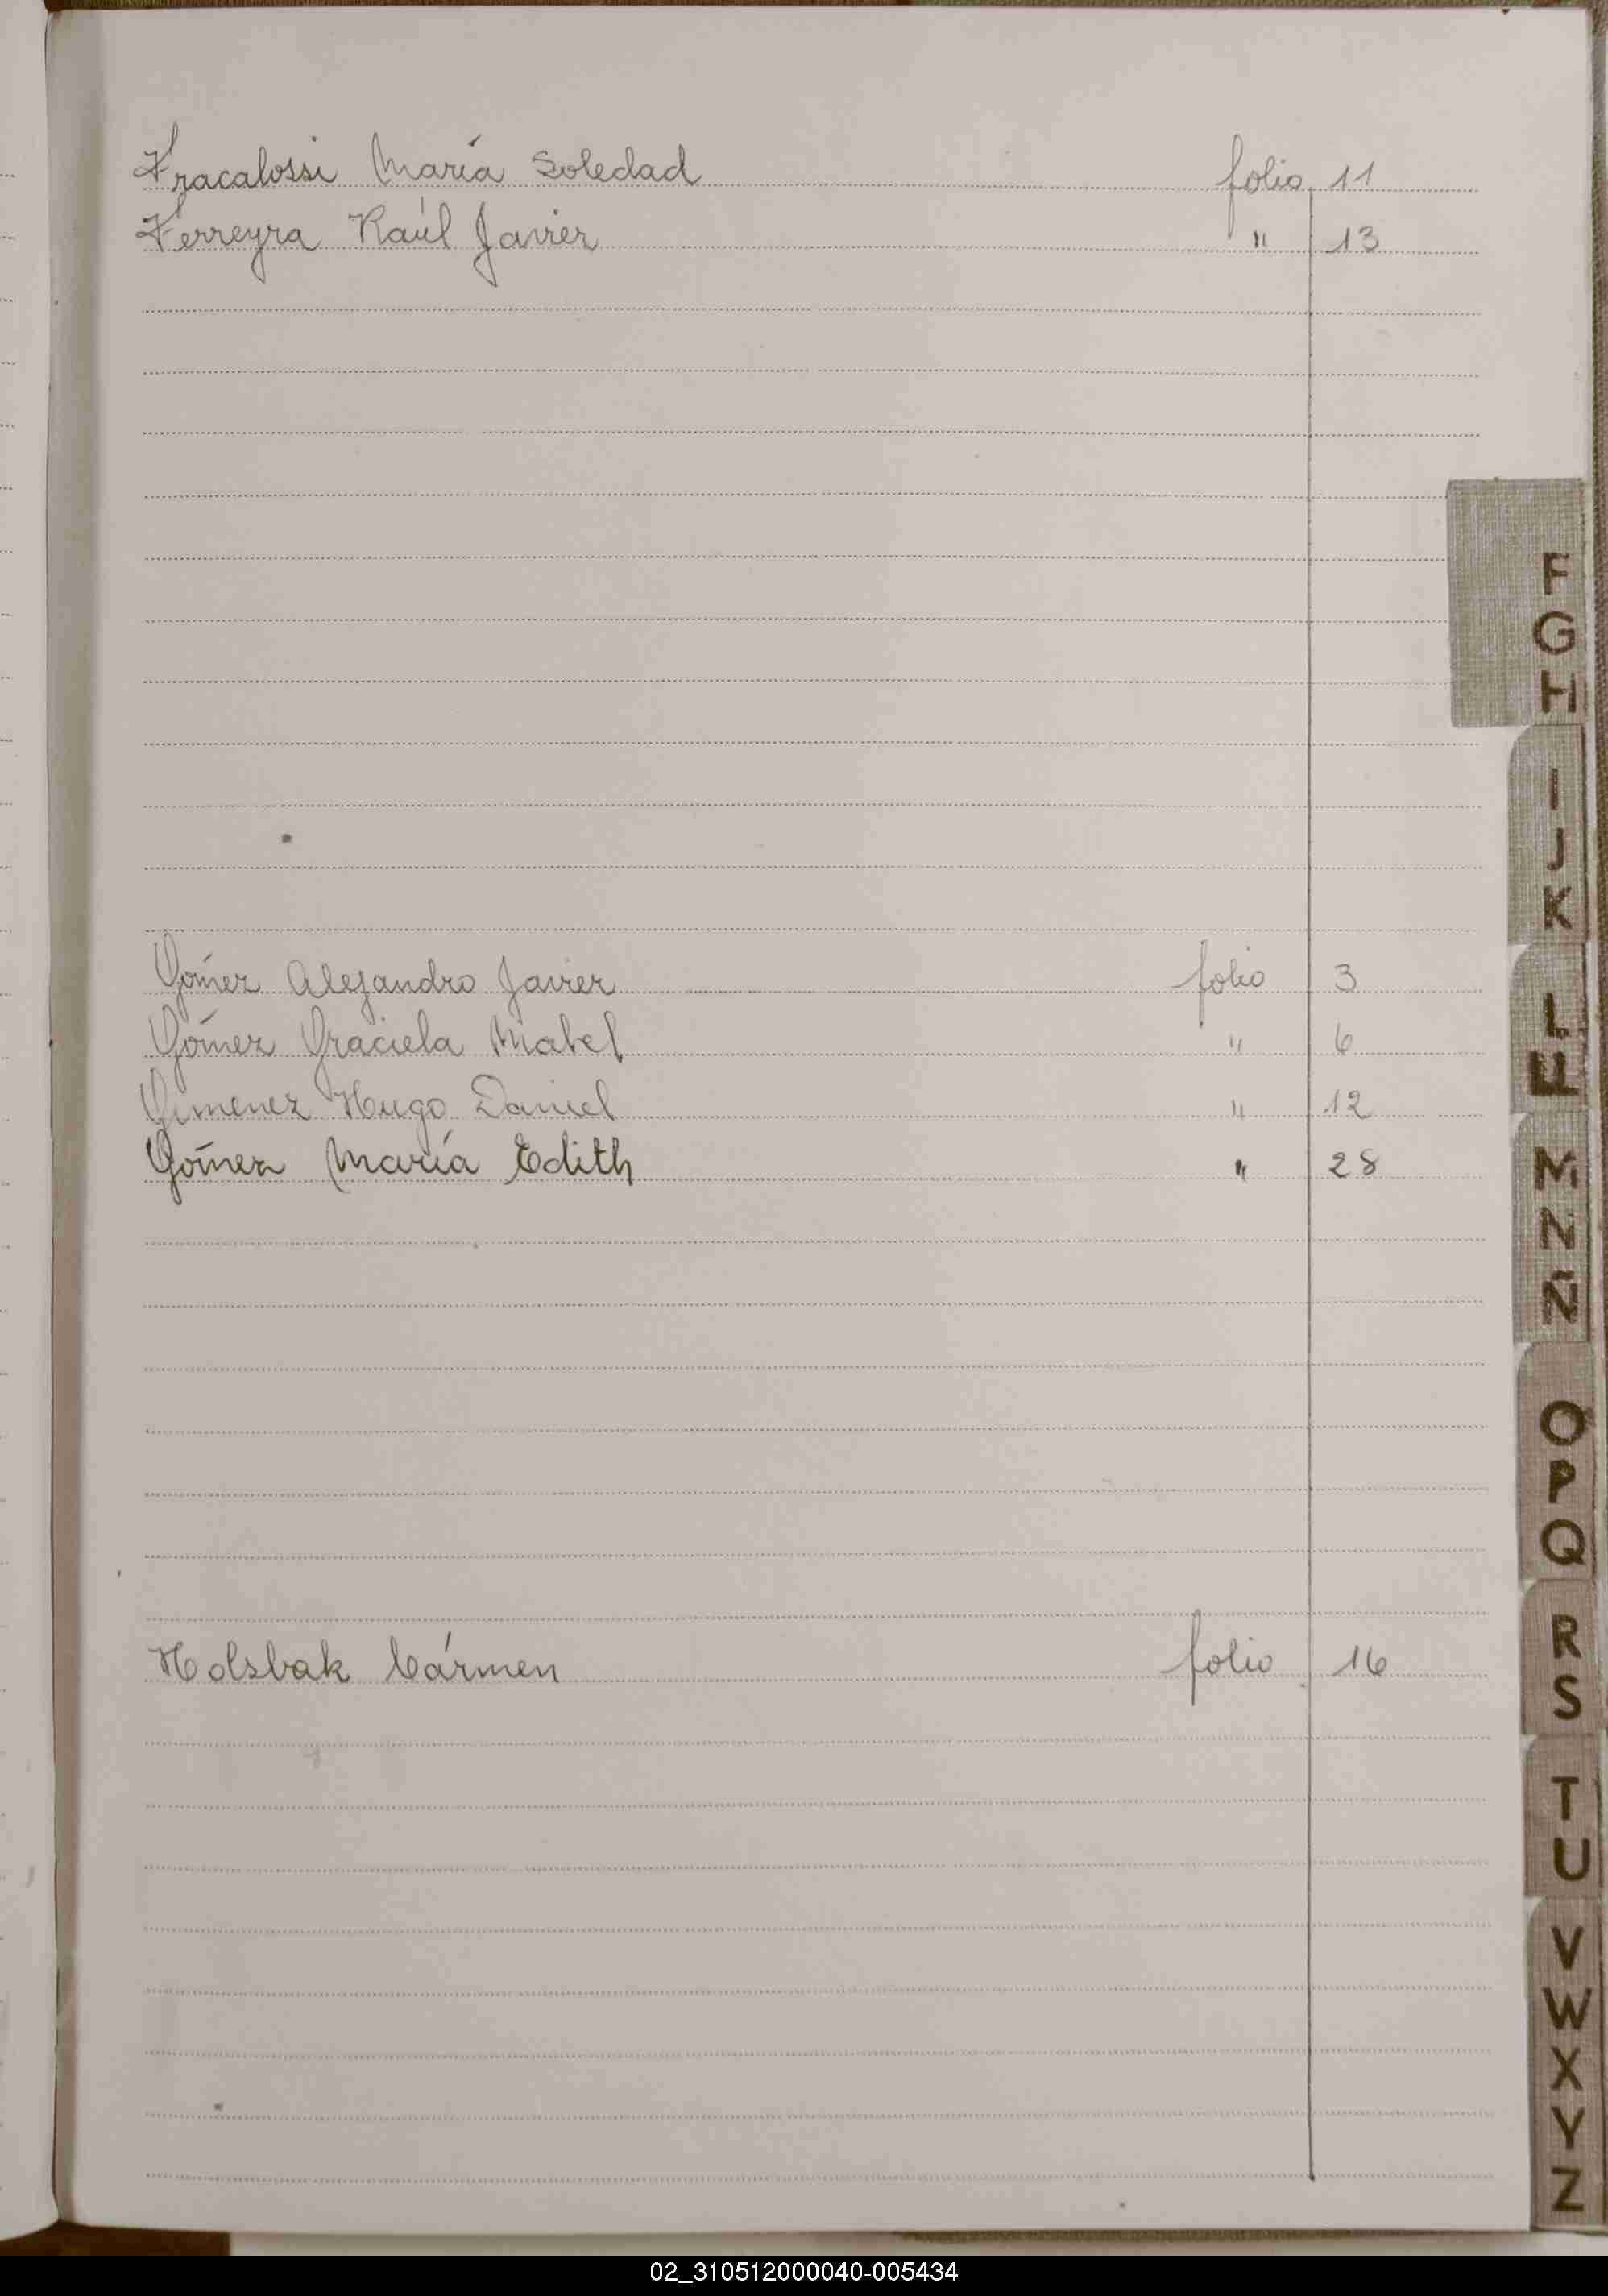 Fracalossi María Soledad folio 11
Ferreyra Raúl Javier " 13
Gómez Alejandro Javier folio 3
Gómez Graciela Mabel " 6
Gimenez Hugo Daniel " 12
Gómez María Edith " 28
Holsbak Cármen folio 16
F
G
H
I
J
K
L
LL
M
N
Ñ
O
P
Q
R
S
T
U
V
W
X
Y
Z
02_310512000040-005434